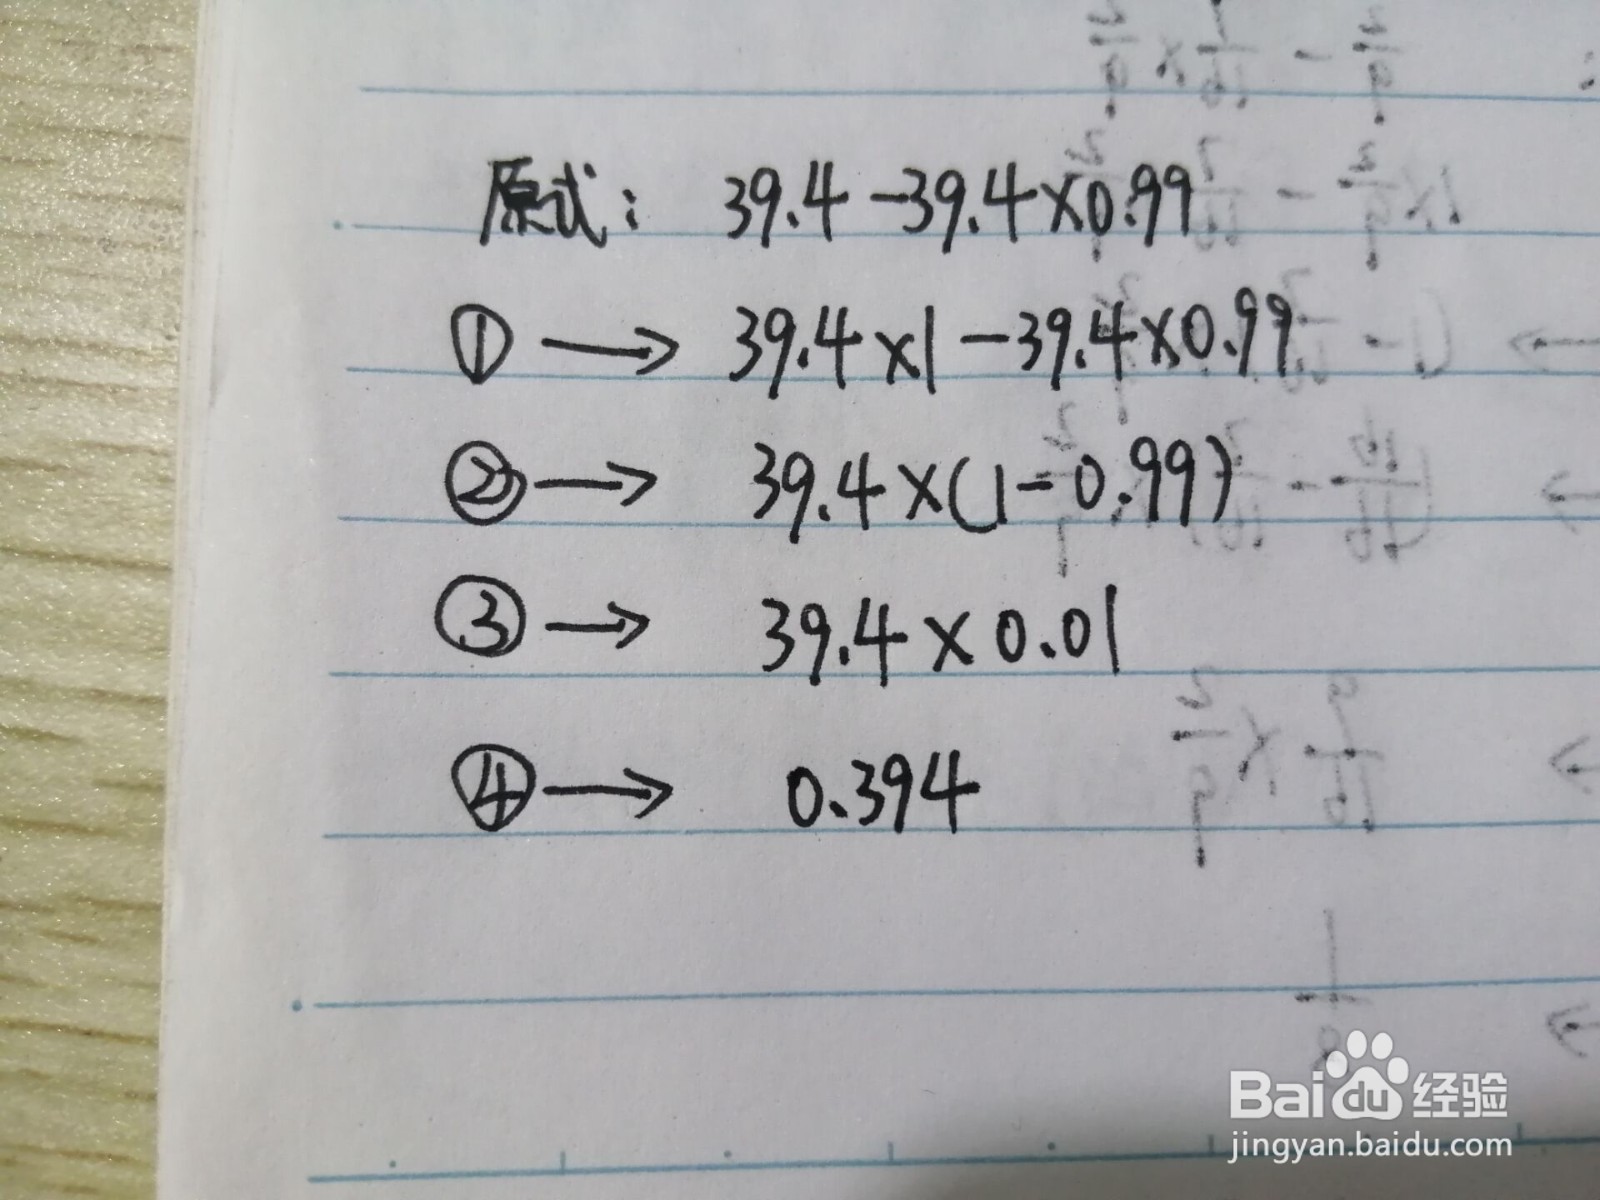 原式: 39.4-39.4×0.99
① → 39.4×1-39.4×0.99
② → 39.4×(1-0.99)
③ → 39.4×0.01
④ → 0.394
Baidu 经验
jingyan.baidu.com